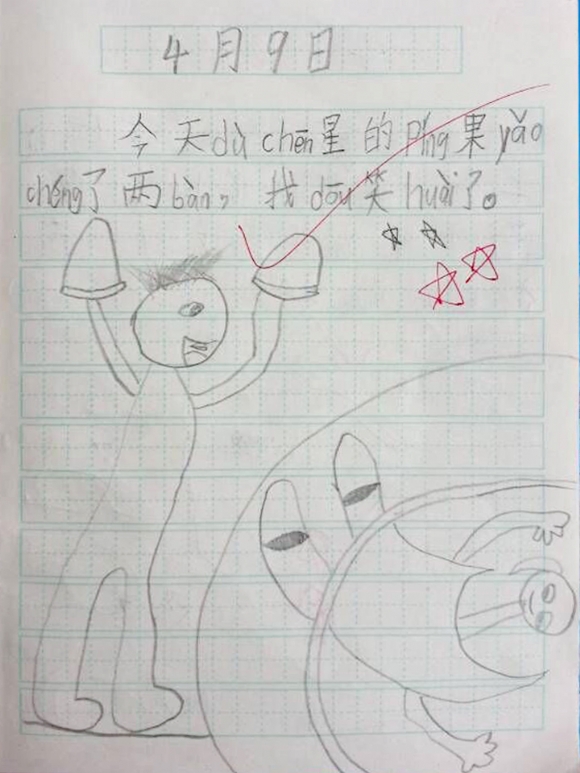 4月9日
今天dù chēn星的píng果yǎo
chéng了两bàn，找dōu笑huài了。